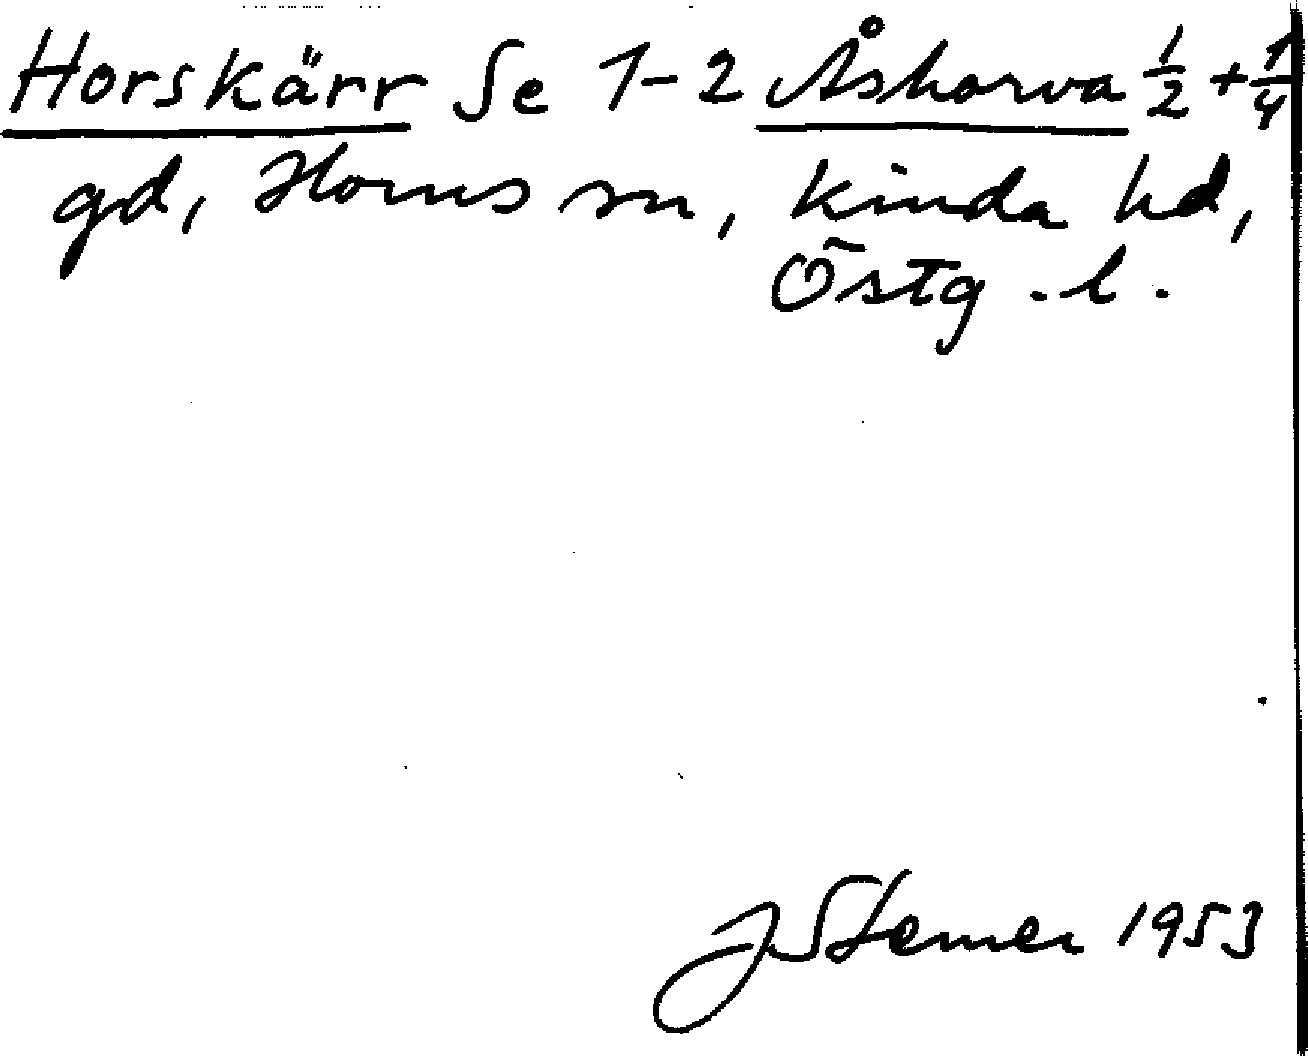 Horskärr Se 1-2 Åsharva ½ + ¼
gd, Horns sn, Kinda hd,
Östg. l.
J Stemer 1953